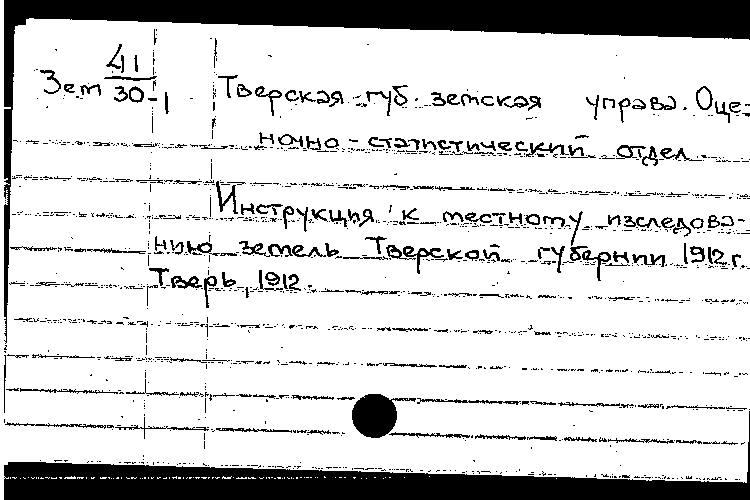 Зем 41/30-1
Тверская губ. земская управа. Оце-
ночно-статистический отдел.
Инструкция к местному изследова-
нию земель Тверской губернии 1912 г.
Тверь, 1912.